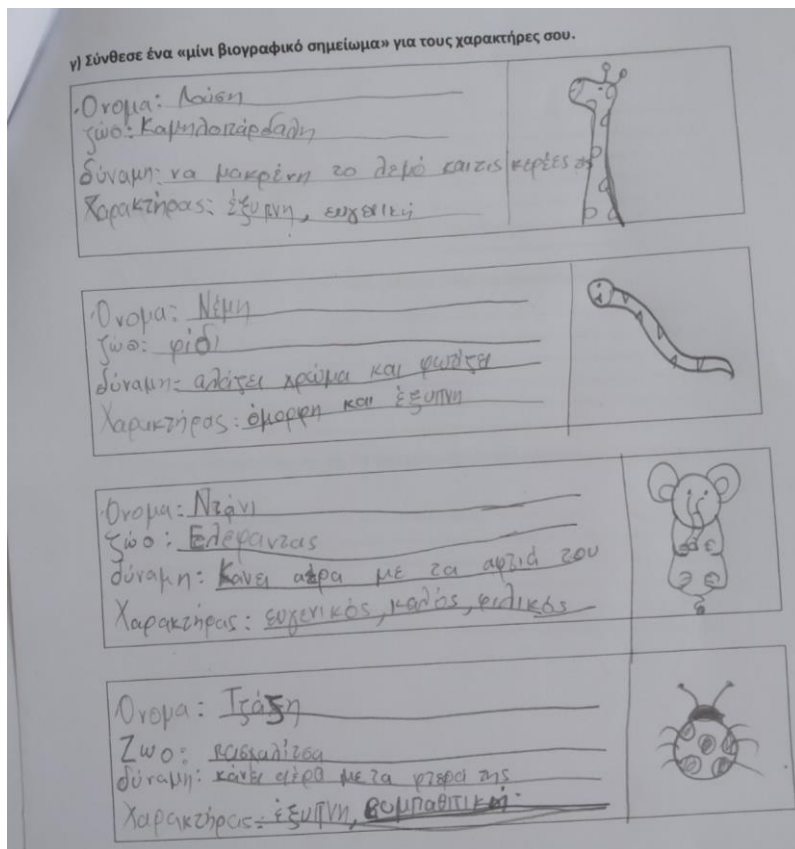 γ) Σύνθεσε ένα «μίνι βιογραφικό σημείωμα» για τους χαρακτήρες σου.
Όνομα: Λούση
ζώο: Καμηλοπάρδαλη
δύναμη: να μακρένη το λεμό και τις κερέες της
Χαρακτήρας: έξυπνη, ευγενική
Όνομα: Νέμη
ζώο: φίδι
δύναμη: αλάζει χρώμα και φωτίζει
Χαρακτήρας: όμορφη και έξυπνη
Όνομα: Ντάνι
ζώο: Ελέφαντας
δύναμη: Κάνει αέρα με τα αφτιά του
Χαρακτήρας: ευγενικός, καλός, φιλικός
Όνομα: Τζάζη
Ζωο: πασχαλίτσα
δύναμη: κάνει αέρα με τα φτερά της
Χαρακτήρας: έξυπνη, συμπαθιτική.